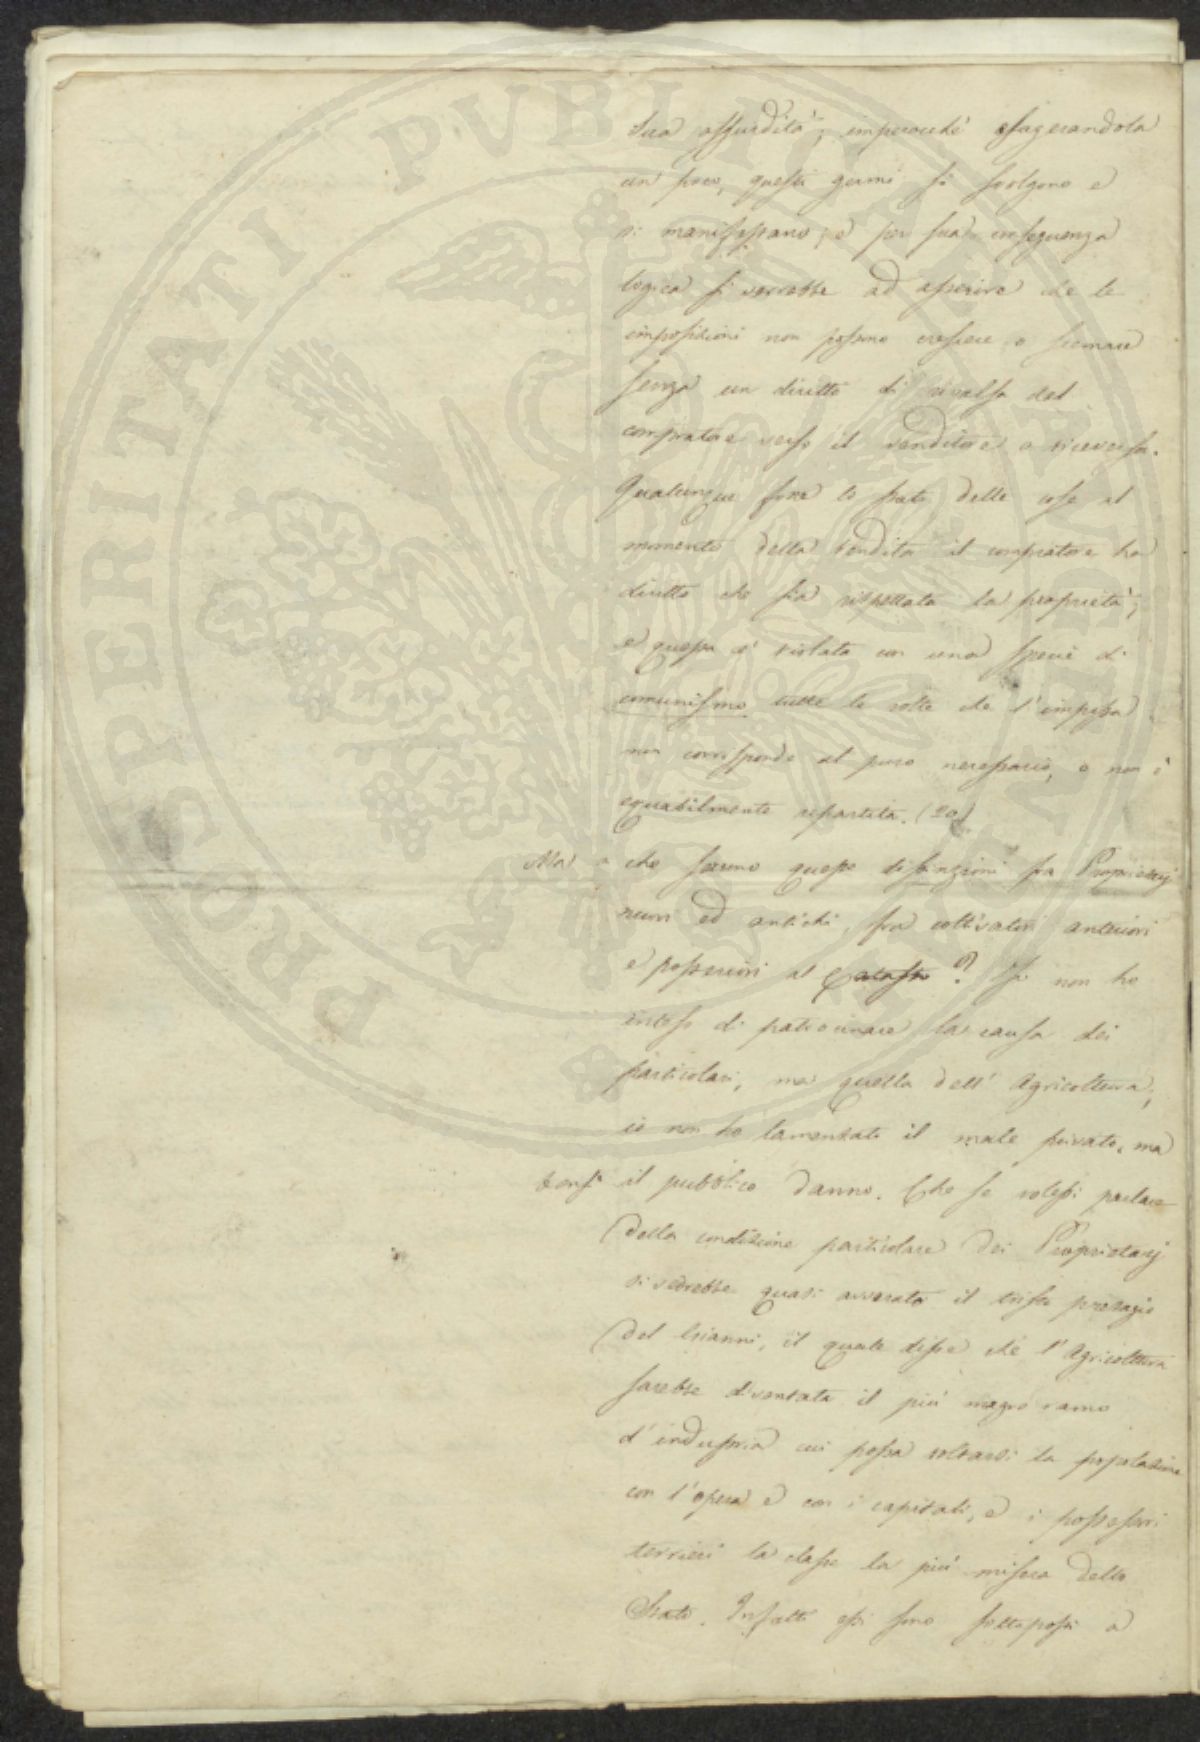 sua assurdità; imperocchè esagerandola
un poco, questi germi si svolgono e
si manifestano; e per sua conseguenza
logica si verrebbe ad asserire che le
imposizioni non possono crescere o scemare
senza un diritto di rivalsa del
compratore verso il venditore o viceversa.
Qualunque fosse lo stato delle cose al
momento della vendita il compratore ha
diritto che sia rispettata la proprietà;
e questa è violata con una specie di
comunismo tutte le volte che l'imposta
non corrisponde al puro necessario, o non è
equabilmente repartita. (20)
Ma a che fanno queste distinzioni fra Proprietarj
nuovi ed antichi, fra coltivatori anteriori
e posteriori al Catasto? Io non ho
inteso di patrocinare la causa dei
particolari, ma quella dell'Agricoltura;
io non ho lamentato il male privato, ma
bensì il pubblico danno. Che se volessi parlare
della condizione particolare dei Proprietarj
si vedrebbe quasi avverato il triste presagio
del Gianni, il quale disse che l'Agricoltura
sarebbe diventata il più magro ramo
d'industria cui possa voltarsi la popolazione
con l'opera e con i capitali, e i possessori
terrieri la classe la più misera dello
Stato. Infatti essi sono sottoposti a
PROSPERITATI PVBLICAE AVGENDAE